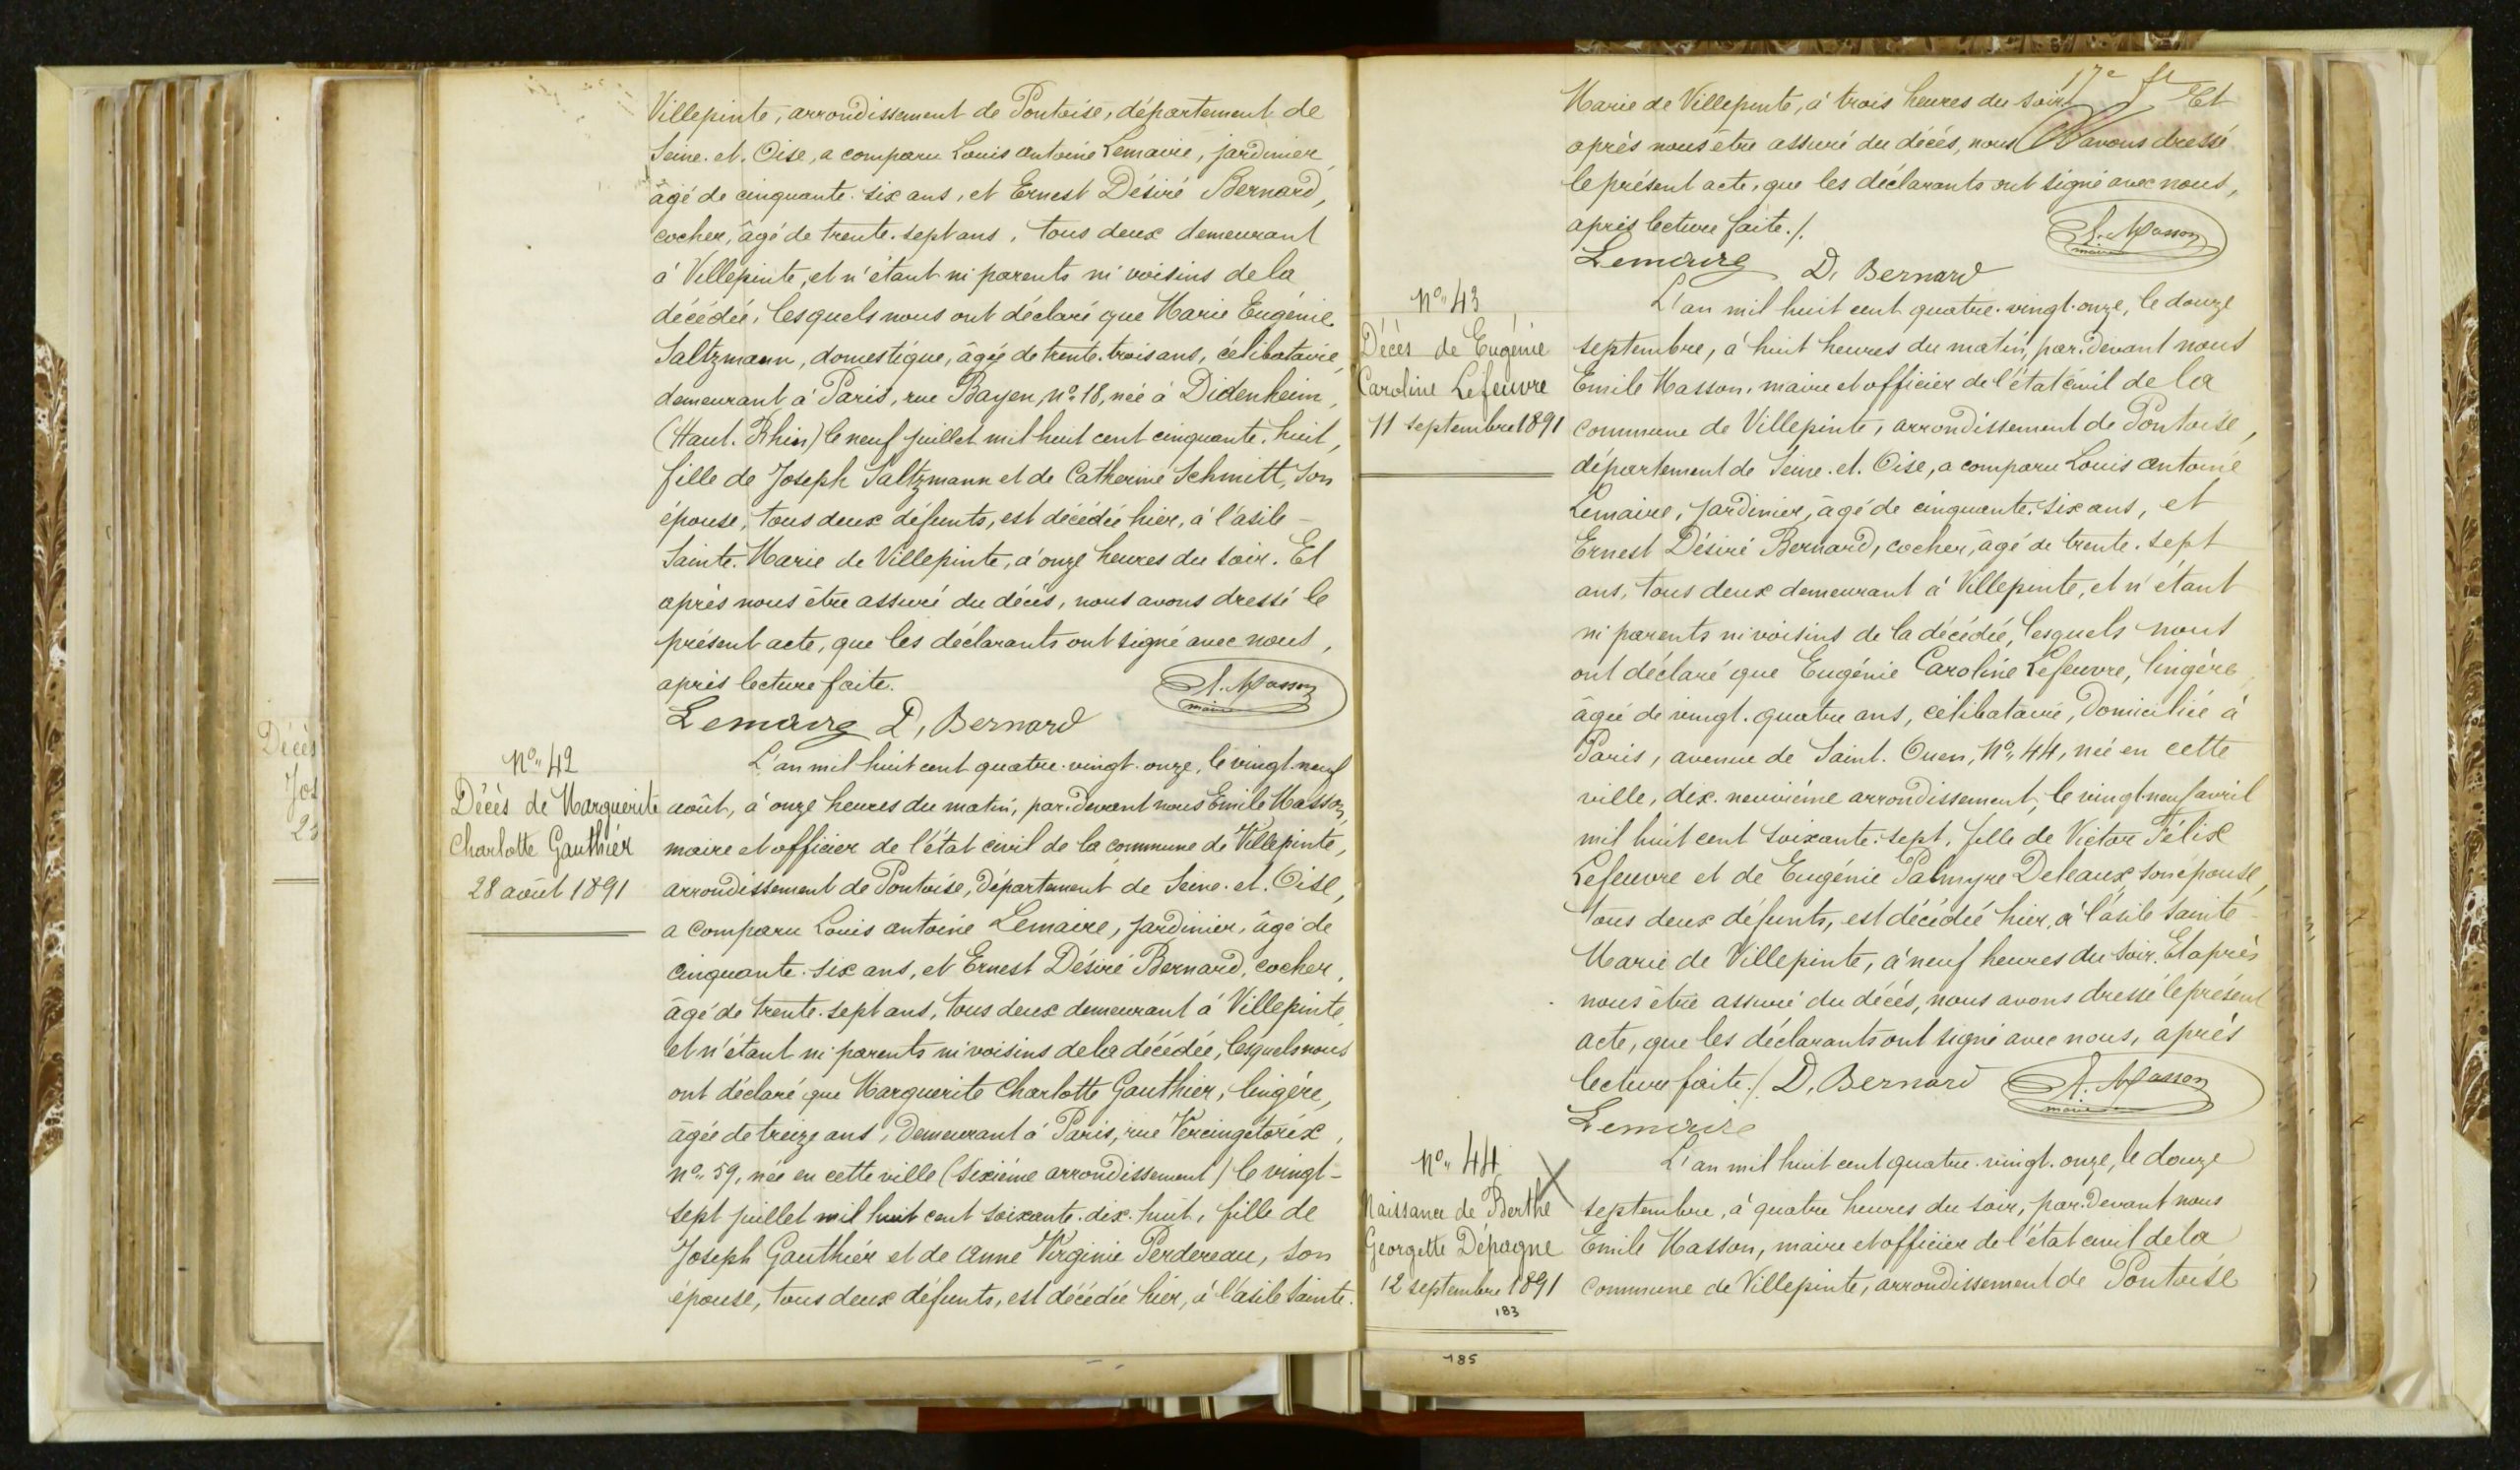 Villepinte, arrondissement de Pontoise, département de
Seine. et. Oise, a comparu Louis antoine Lemaire, jardinier,
âgé de cinquante. six ans, et Ernest Désiré Bernard,
cocher, âgé de trente. sept ans, tous deux demeurant
à Villepinte, et n'étant ni parents ni voisins de la
décédée, lesquels nous ont déclaré que Marie Eugénie
Saltzmann, domestique, âgée de trente. trois ans, célibataire,
demeurant à Paris, rue Bayen, nº 18, née à Didenheim,
(Haut. Rhin) le neuf juillet mil huit cent cinquante. huit,
fille de Joseph Saltzmann et de Catherine Schmitt, son
épouse, tous deux défunts, est décédée hier, à l'asile
Sainte. Marie de Villepinte, à onze heures du soir. Et
après nous être assuré du décès, nous avons dressé le
présent acte, que les déclarants ont signé avec nous,
après lecture faite.
E. Masson
maire
Lemaire D. Bernard
Nº 42
Décès de Marguerite
Charlotte Gauthier
28 août 1891
L'an mil huit cent quatre. vingt. onze, le vingt. neuf
août, à onze heures du matin, par. devant nous Emile Masson,
maire et officier de l'état civil de la commune de Villepinte,
arrondissement de Pontoise, Département de Seine. et. Oise,
a comparu Louis antoine Lemaire, jardinier, âgé de
cinquante. six ans, et Ernest Désiré Bernard, cocher,
âgé de trente. sept ans, tous deux demeurant à Villepinte,
et n'étant ni parents ni voisins de la décédée, lesquels nous
ont déclaré que Marguerite Charlotte Gauthier, lingère,
âgée de treize ans, demeurant à Paris, rue Vercingétorix,
nº 59, née en cette ville (sixième arrondissement) le vingt-
sept juillet mil huit cent soixante. dix. huit, fille de
Joseph Gauthier et de anne Virginie Perdereau, son
épouse, tous deux défunts, est décédée hier, à l'asile Sainte.
Décès
Jos
23
17e ft
Marie de Villepinte, à trois heures du soir. Et
après nous être assuré du décès, nous avons dressé
le présent acte, que les déclarants ont signé avec nous,
après lecture faite./.
E. Masson
maire
Lemaire D. Bernard
Nº 43
Décès de Eugénie
Caroline Lefeuvre
11 septembre 1891
L'an mil huit cent quatre. vingt. onze, le douze
septembre, à huit heures du matin, par. devant nous
Emile Masson, maire et officier de l'état civil de la
commune de Villepinte, arrondissement de Pontoise,
département de Seine. et. Oise, a comparu Louis antoine
Lemaire, jardinier, âgé de cinquante. six ans, et
Ernest Désiré Bernard, cocher, âgé de trente. sept
ans, tous deux demeurant à Villepinte, et n'étant
ni parents ni voisins de la décédée, lesquels nous
ont déclaré que Eugénie Caroline Lefeuvre, lingère,
âgée de vingt. quatre ans, célibataire, Domiciliée à
Paris, avenue de Saint. Ouen, Nº 44, née en cette
ville, dix. neuvième arrondissement, le vingt-neuf avril
mil huit cent soixante. sept, fille de Victor Félix
Lefeuvre et de Eugénie Palmyre Deleaux, son épouse,
tous deux défunts, est décédée hier, à l'asile Sainte
Marie de Villepinte, à neuf heures du soir. Et après
nous être assuré du décès, nous avons dressé le présent
acte, que les déclarants ont signé avec nous, après
lecture faite./. D. Bernard E. Masson
maire
Lemaire
Nº 44
Naissance de Berthe
Georgette Dépagne
12 septembre 1891
183
L'an mil huit cent quatre. vingt. onze, le douze
septembre, à quatre heures du soir, par. Devant nous
Emile Masson, maire et officier de l'état civil de la
commune de Villepinte, arrondissement de Pontoise
185